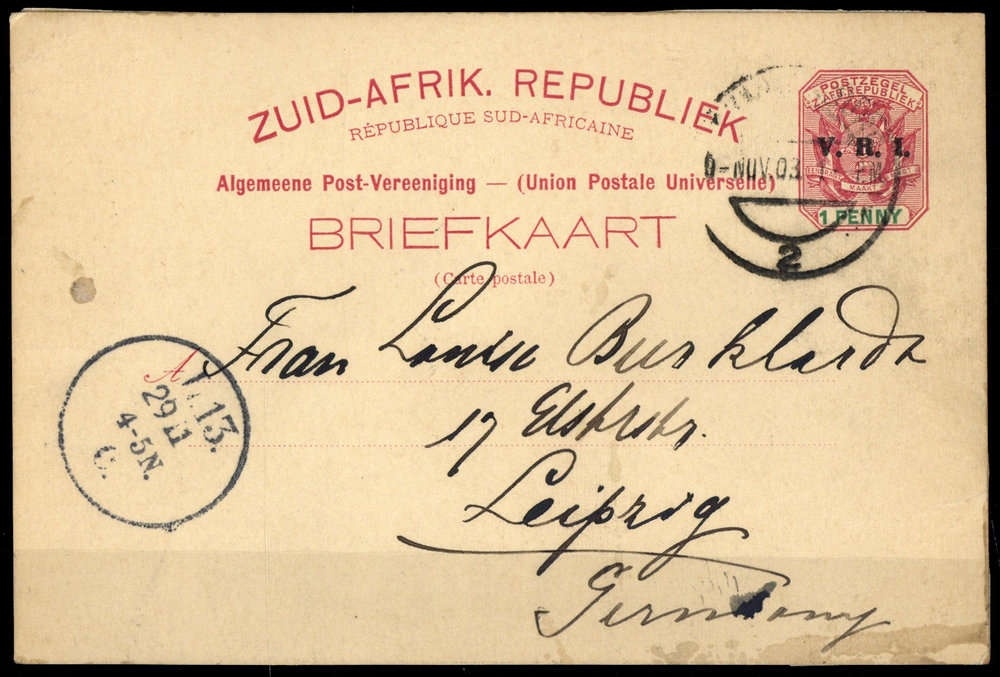 ZUID-AFRIK. REPUBLIEK
RÉPUBLIQUE SUD-AFRICAINE
Algemeene Post-Vereeniging — (Union Postale Universelle)
BRIEFKAART
(Carte postale)
POSTZEGEL
Z. AFR. REPUBLIEK
V. R. I.
EENDRAGT MAAKT MAGT
1 PENNY
NOV. 03
2
A
Frau Louise Burkhardt
17 Elststr.
Leipzig
Germany
L.13.
29 11
4-5 N.
C.